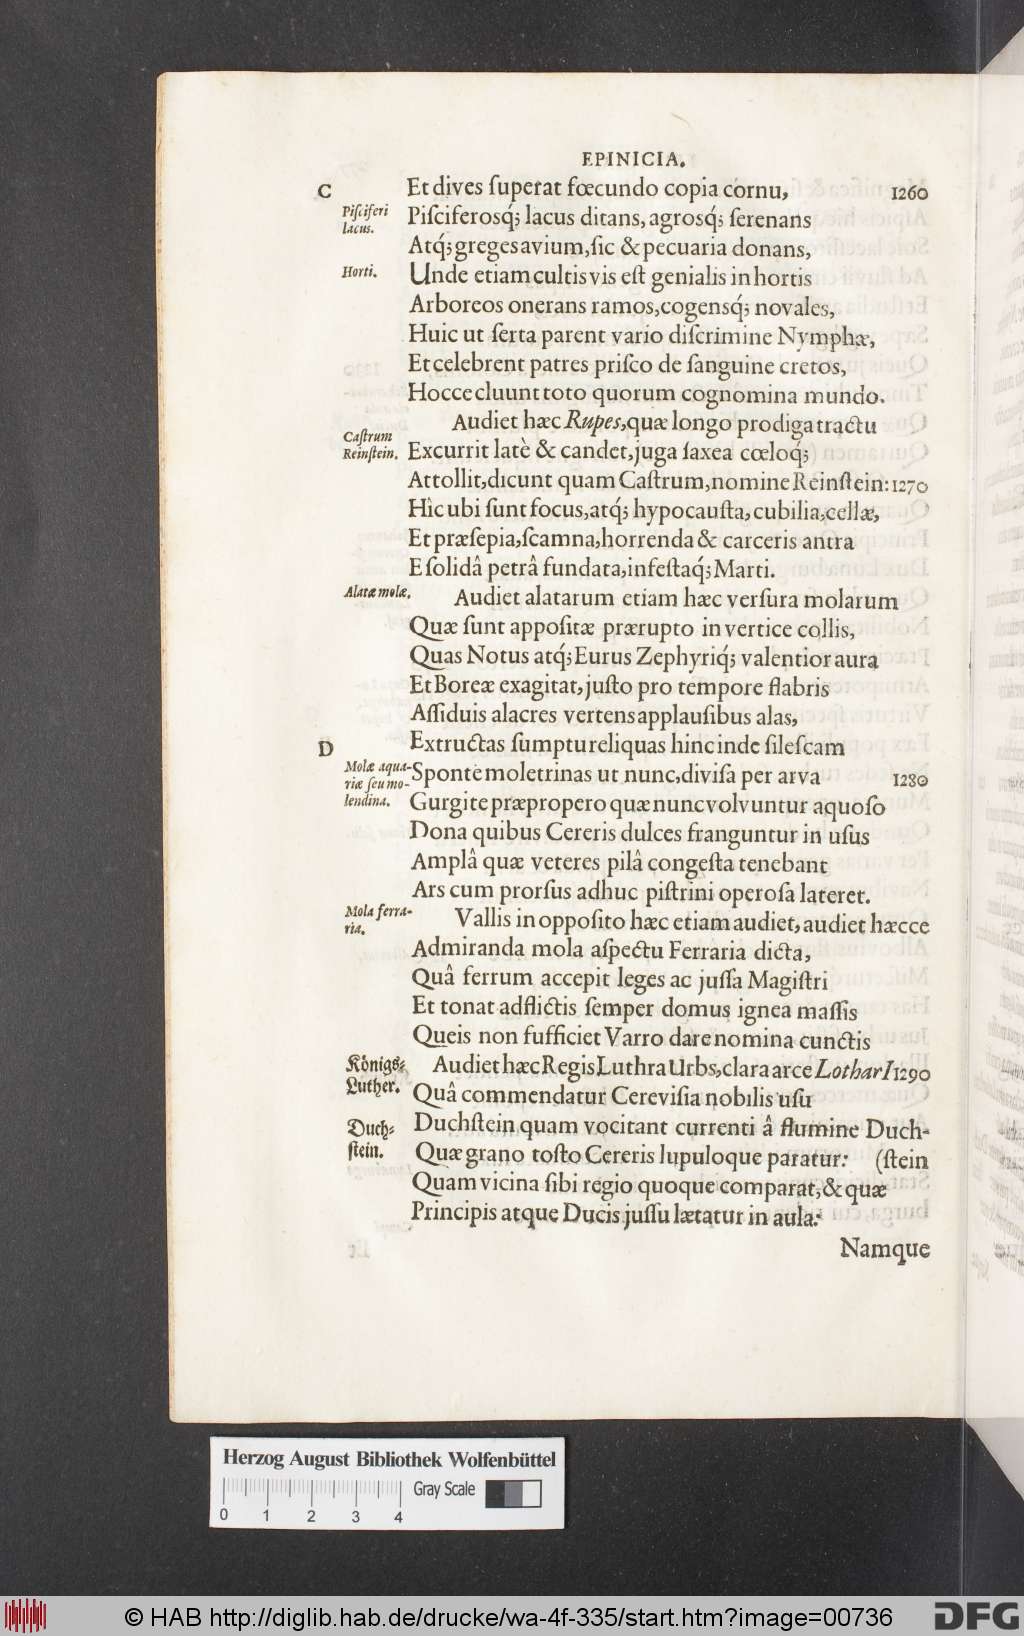 EPINICIA.
C Et dives ſuperat fœcundo copia cornu, 1260
Piſciferi lacus. Piſciferosq́; lacus ditans, agrosq́; ſerenans
Atq́; greges avium, ſic & pecuaria donans,
Horti. Unde etiam cultis vis eſt genialis in hortis
Arboreos onerans ramos, cogensq́; novales,
Huic ut ſerta parent vario diſcrimine Nymphæ,
Et celebrent patres priſco de ſanguine cretos,
Hocce cluunt toto quorum cognomina mundo.
Audiet hæc Rupes, quæ longo prodiga tractu
Caſtrum Reinſtein. Excurrit latè & candet, juga ſaxea cœloq́;
Attollit, dicunt quam Caſtrum, nomine Reinſtein: 1270
Hìc ubi ſunt focus, atq́; hypocauſta, cubilia, cellæ,
Et præſepia, ſcamna, horrenda & carceris antra
E ſolidâ petrâ fundata, infeſtaq́; Marti.
Alatæ molæ. Audiet alatarum etiam hæc verſura molarum
Quæ ſunt appoſitæ prærupto in vertice collis,
Quas Notus atq́; Eurus Zephyriq́; valentior aura
Et Boreæ exagitat, juſto pro tempore flabris
Aſſiduis alacres vertens applauſibus alas,
D Extructas ſumptu reliquas hinc inde ſileſcam
Molæ aquariæ ſeu molendina. Sponte moletrinas ut nunc, diviſa per arva 1280
Gurgite præpropero quæ nunc volvuntur aquoſo
Dona quibus Cereris dulces franguntur in uſus
Amplâ quæ veteres pilâ congeſta tenebant
Ars cum prorſus adhuc piſtrini operoſa lateret.
Mola ferraria. Vallis in oppoſito hæc etiam audiet, audiet hæcce
Admiranda mola aſpectu Ferraria dicta,
Quâ ferrum accepit leges ac juſſa Magiſtri
Et tonat adflictis ſemper domus ignea maſſis
Queis non ſufficiet Varro dare nomina cunctis
Königs⸗Luther. Audiet hæc Regis Luthra Urbs, clara arce LotharI 1290
Quâ commendatur Cereviſia nobilis uſu
Duch⸗ſtein. Duchſtein quam vocitant currenti â flumine Duch-
Quæ grano toſto Cereris lupuloque paratur: (ſtein
Quam vicina ſibi regio quoque comparat, & quæ
Principis atque Ducis juſſu lætatur in aula:
Namque
Herzog August Bibliothek Wolfenbüttel
Gray Scale
0 1 2 3 4
© HAB http://diglib.hab.de/drucke/wa-4f-335/start.htm?image=00736
DFG